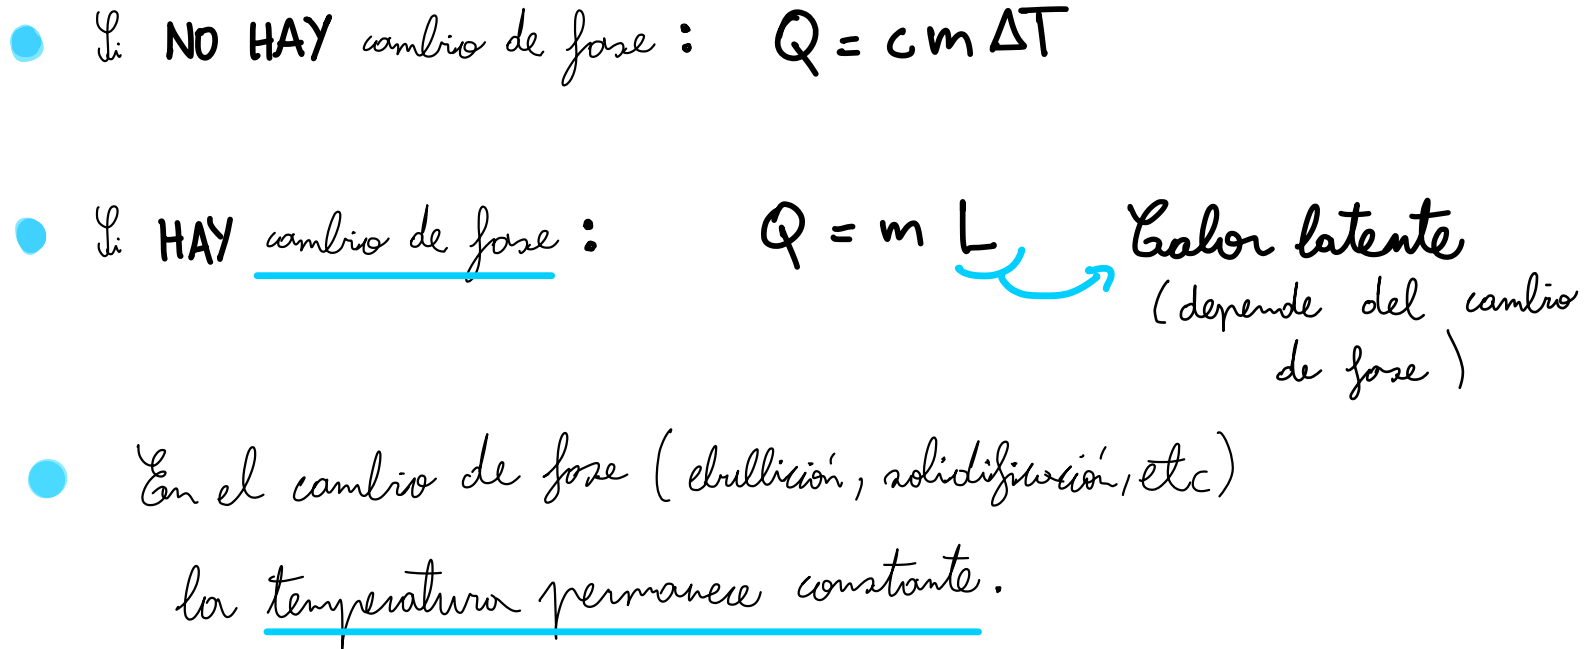 Si NO HAY cambio de fase : Q = c m ΔT
Si HAY cambio de fase : Q = m L Calor latente
(depende del cambio
de fase)
En el cambio de fase (ebullición, solidificación, etc)
la temperatura permanece constante.